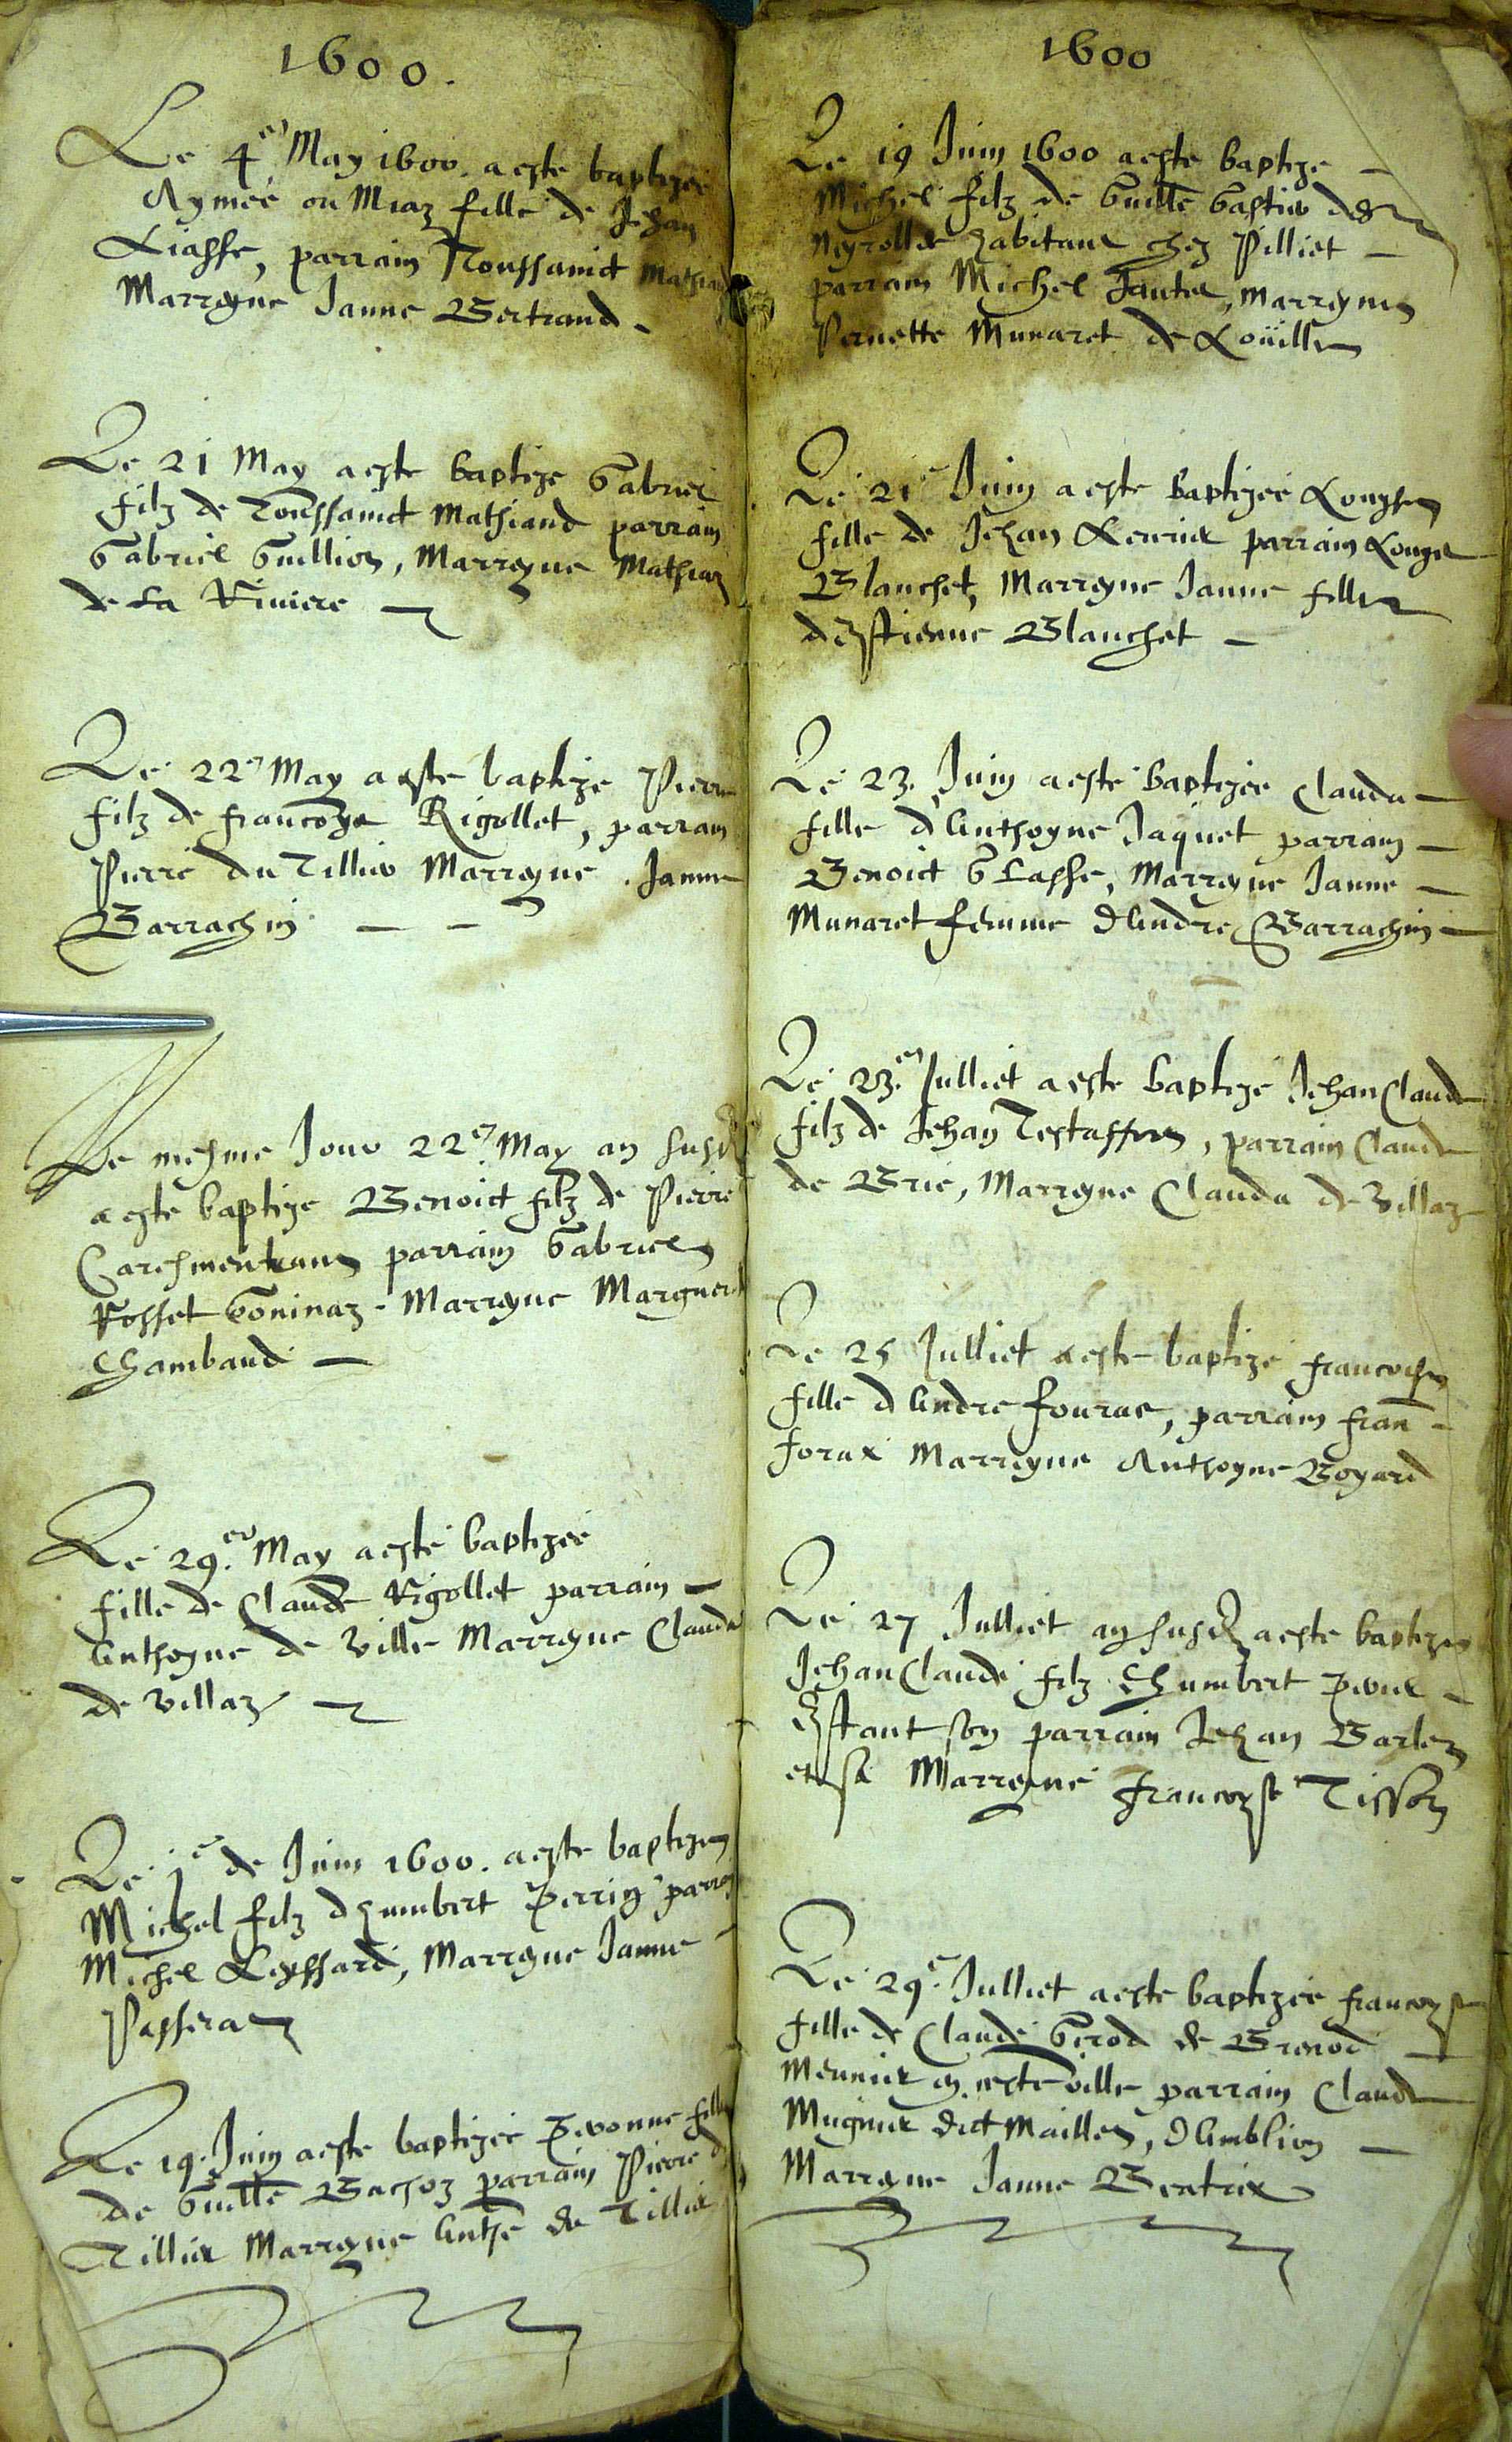 1600.
Le 4e May 1600. a este baptizee
Aymee ou Miaz fille de Jehan
Liasse, parrain Toussainct Mathiand
Marreyne Janne Bertrand
Le 21 May a este baptize Gabriel
filz de Toussainct Mathiand parrain
Gabriel Guillion, Marreyne Mathiaz
de la Riviere
Le 22e May a este baptize Pierre
filz de Francoys Rigollet, parrain
Pierre du Tillier Marreyne Janne
Barrachin
Le mesme Jour 22e May an susd
a este baptize Benoict filz de Pierre
parrain Gabriel
Rosset Goninaz - Marreyne Marguer
Chambaud
Le 29e May a este baptizee
fille de Claude Rigollet parrain
Anthoyne de Ville Marreyne Clauda
de Villaz
Le je de Juin 1600. a este baptize
Michel filz dhumbert Perrin parrain
Michel Leyssard, Marreyne Janne
Passeraz
Le 19. Juin a este baptizee Pivonne fille
de Guille Bachoz parrain Pierre du
Tillier Marreyne Anthe du Tillier
1600
Le 19 Juin 1600 a este baptize
Michel filz de Guille Gastier de
Neyrolles habitant chez Pilliet
parrain Michel Jantet, Marreyne
Pernette Munaret de
Le 21e Juin a este baptizee Louyse
fille de Jehan parrain Louys
Blanchet, Marreyne Janne fille
dEstienne Blanchet
Le 23. Juin a este baptizee Clauda
fille dAnthoyne Jaquet parrain
Benoict Glasse, Marreyne Janne
Munaret femme dAndre Barrachin
Le 23e Julliet a este baptize Jehan Claude
filz de Jehan parrain Claude
de Brie, Marreyne Clauda de Villaz
Le 25 Julliet a este baptize francoise
fille dAndre fourax, parrain fran
forax Marreyne Anthoyne Boyard
Le 27 Julliet an susd a este baptize
Jehan Claude filz dhumbert
Estant son parrain Jehan Barlez
et sa Marreyne Francoyse Tisson
Le 29e Julliet a este baptizee francoyse
fille de Claude Girod de Brenod
Meunier en ceste ville parrain Claude
Mugnier dict Maillez, dAmblion
Marreyne Janne Beatrix